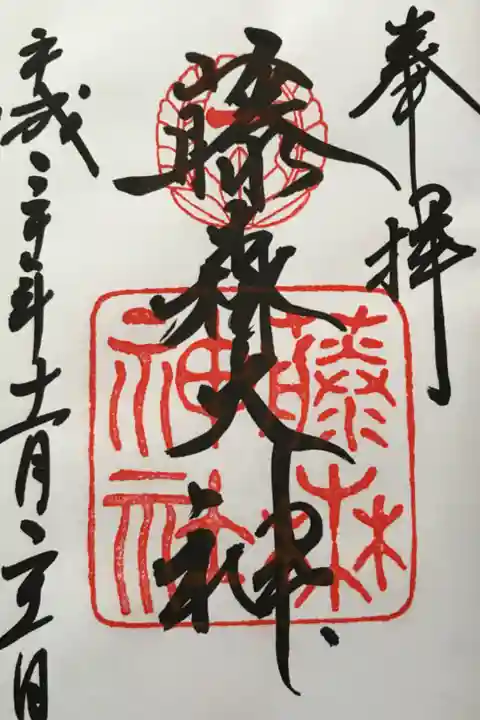 奉拝
藤森大神
藤森
神社
平成三十年十一月二五日